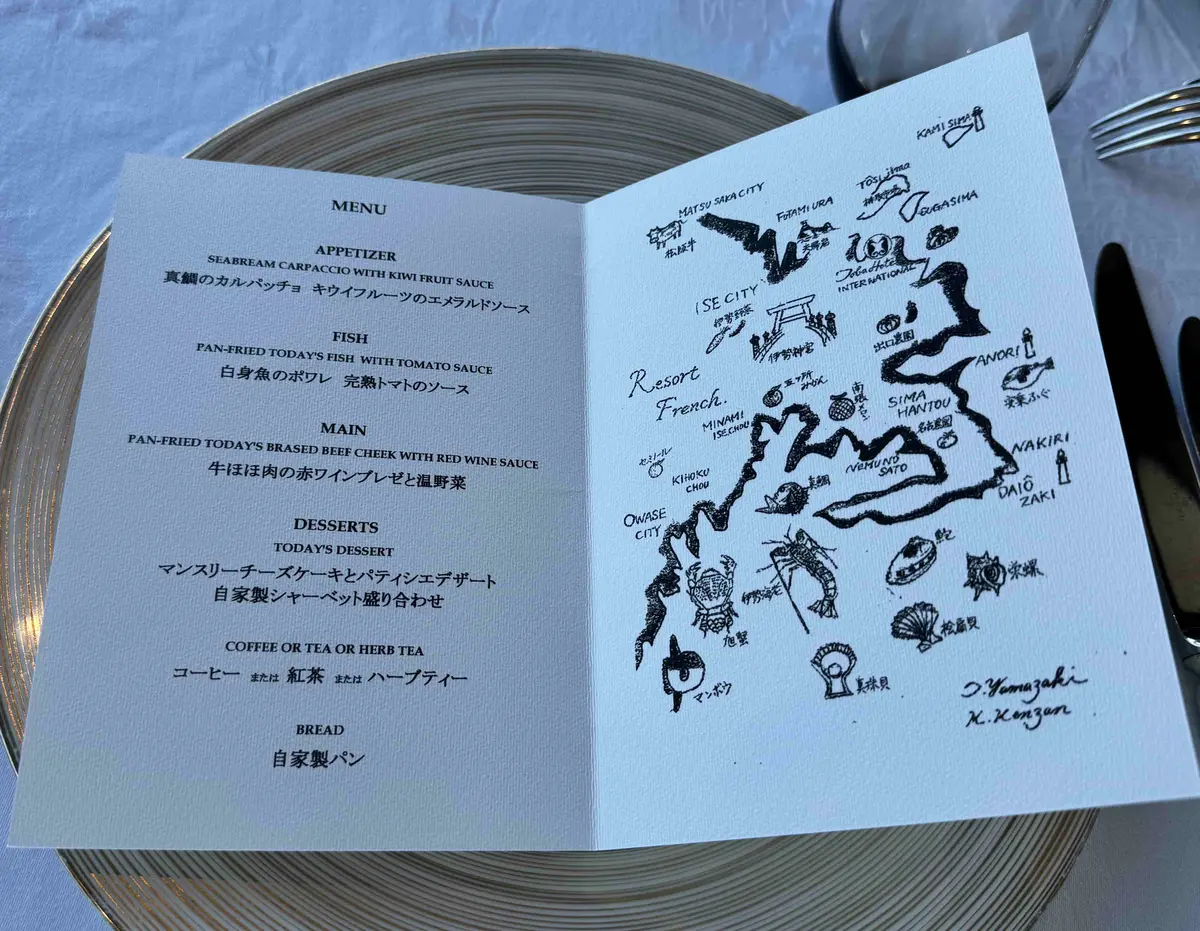 MENU
APPETIZER
SEABREAM CARPACCIO WITH KIWI FRUIT SAUCE
真鯛のカルパッチョ キウイフルーツのエメラルドソース
FISH
PAN-FRIED TODAY'S FISH WITH TOMATO SAUCE
白身魚のポワレ 完熟トマトのソース
MAIN
PAN-FRIED TODAY'S BRASED BEEF CHEEK WITH RED WINE SAUCE
牛ほほ肉の赤ワインブレゼと温野菜
DESSERTS
TODAY'S DESSERT
マンスリーチーズケーキとパティシエデザート
自家製シャーベット盛り合わせ
COFFEE OR TEA OR HERB TEA
コーヒー または 紅茶 または ハーブティー
BREAD
自家製パン
KAMISIMA
Tôsijima
SUGASIMA
MATSUSAKA CITY
松阪牛
FUTAMIURA
夫婦岩
Toba Hotel
INTERNATIONAL
ISE CITY
伊勢野菜
伊勢神宮
出口農園
ANORI
安乗ふぐ
Resort
French.
五ヶ所
みかん
MINAMI
ISECHOU
SIMA
HANTOU
セミノール
KIHOKU
CHOU
NEMUNO
SATO
NAKIRI
DAIÔ
ZAKI
真鯛
OWASE
CITY
伊勢海老
鮑
栄螺
旭蟹
桧扇貝
マンボウ
真珠貝
J. Yamazaki
K. Kenzan